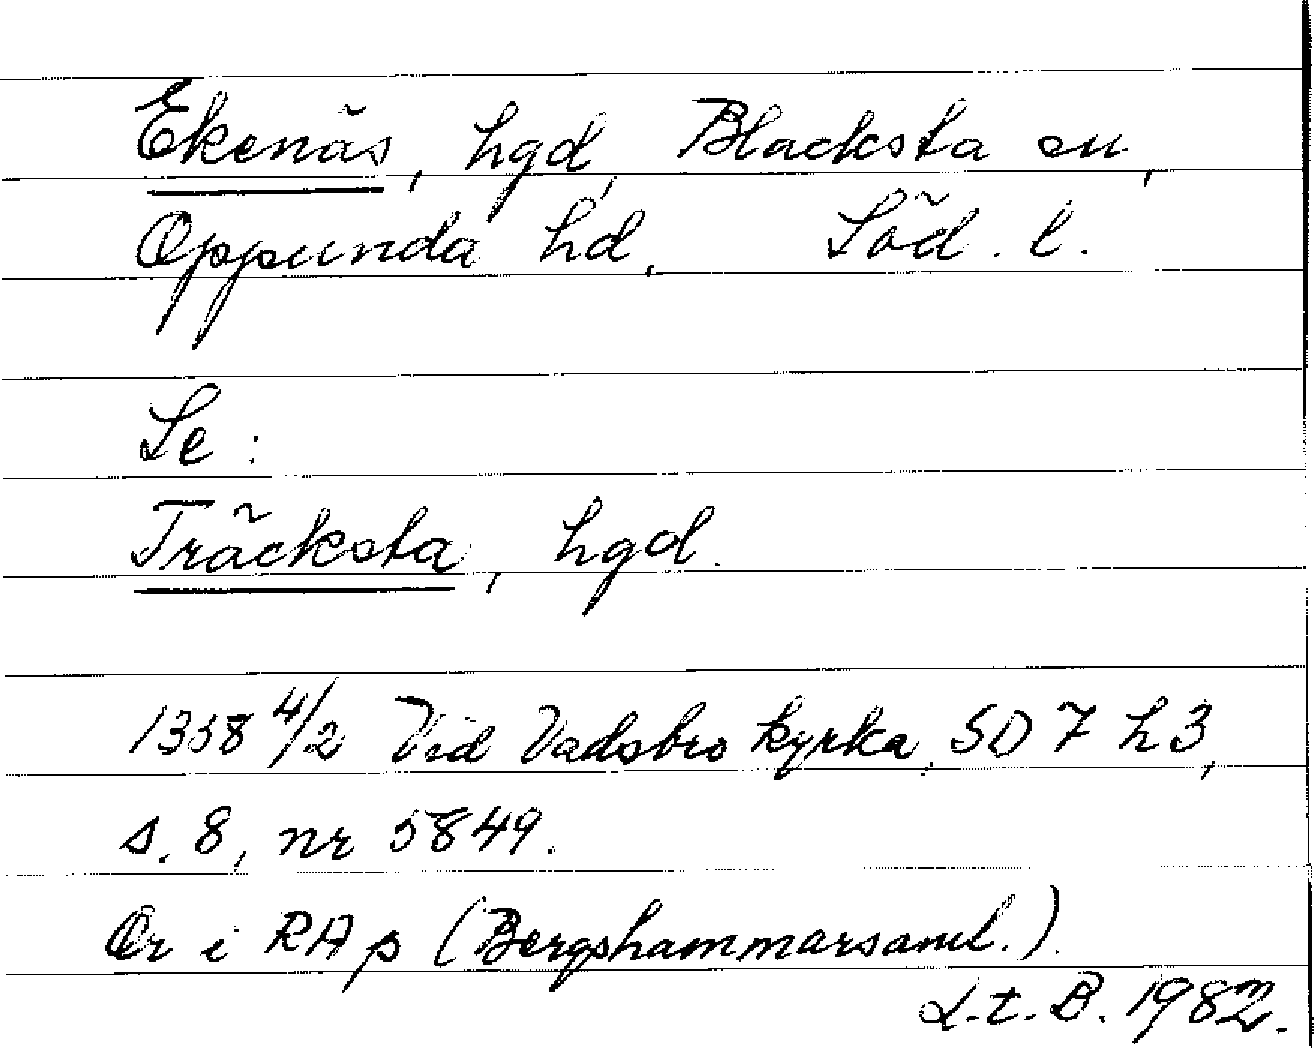 Ekenäs, hgd, Blacksta sn,
Oppunda hd, Söd. l.
Se:
Träcksta, hgd.
1358 4/2 Vid Vadsbro kyrka, SD 7 h 3,
s. 8, nr 5849.
Or i RAp (Bergshammarsaml.).
L.t. B. 1982.